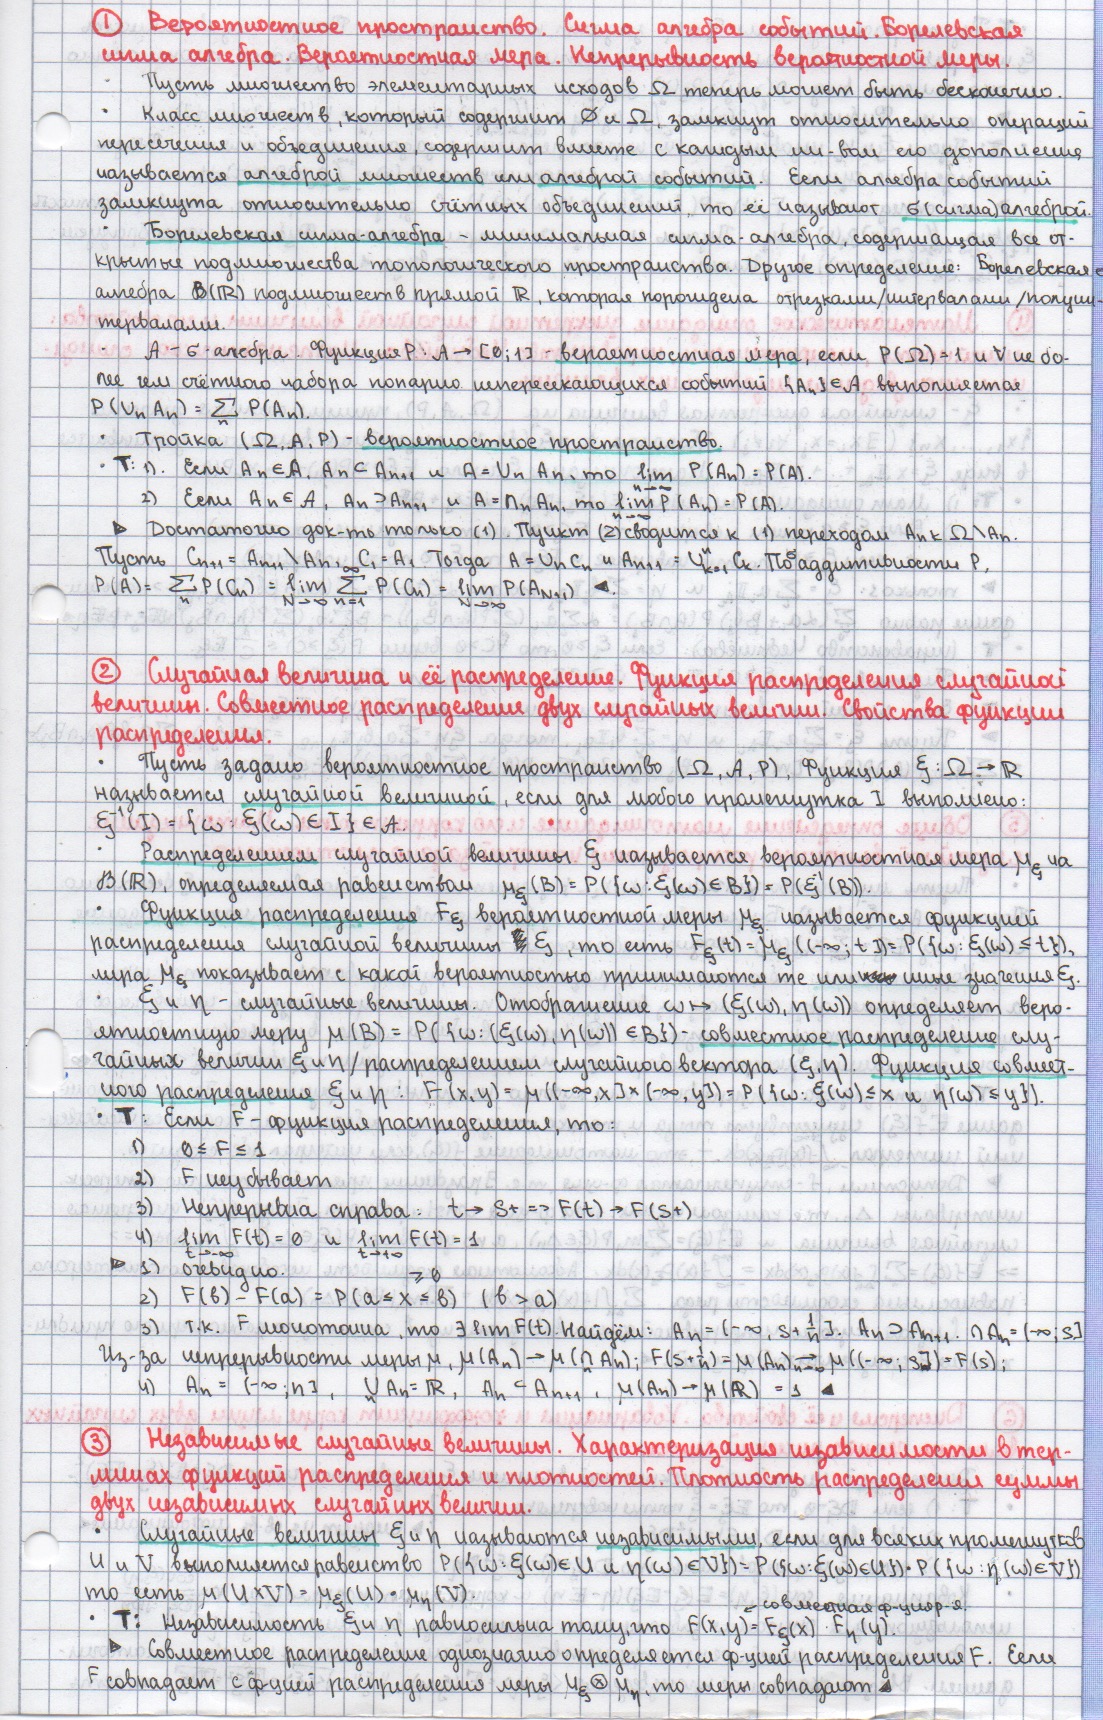 ① Вероятностное пространство. Сигма алгебра событий. Борелевская
сигма алгебра. Вероятностная мера. Непрерывность вероятностной меры.
· Пусть множество элементарных исходов Ω теперь может быть бесконечно.
· Класс множеств, который содержит ∅ и Ω, замкнут относительно операций
пересечения и объединения, содержит вместе с каждым мн-вом его дополнение,
называется алгеброй множеств или алгеброй событий. Если алгебра событий
замкнута относительно счётных объединений, то её называют σ(сигма)алгеброй.
· Борелевская сигма-алгебра - минимальная сигма-алгебра, содержащая все от-
крытые подмножества топологического пространства. Другое определение: Борелевская σ
алгебра B(ℝ) подмножеств прямой ℝ, которая порождена отрезками/интервалами/полуин-
тервалами.
· A - σ-алгебра. Функция P: A → [0;1] - вероятностная мера, если P(Ω)=1 и ∀ не бо-
лее чем счётного набора попарно непересекающихся событий {Aₙ}∈A выполняется
P(∪ₙAₙ) = ∑ₙ P(Aₙ).
· Тройка (Ω, A, P) - вероятностное пространство.
· T: 1). Если Aₙ∈A, Aₙ⊂Aₙ₊₁ и A=∪ₙAₙ, то lim n→∞ P(Aₙ)=P(A).
2) Если Aₙ∈A, Aₙ⊃Aₙ₊₁ и A=∩ₙAₙ, то lim n→∞ P(Aₙ)=P(A).
▷ Достаточно док-ть только (1). Пункт (2) сводится к (1) переходом Aₙ к Ω\Aₙ.
Пусть Cₙ₊₁=Aₙ₊₁\Aₙ, C₁=A₁. Тогда A=∪ₙCₙ и Aₙ₊₁=∪ⁿₖ₌₁Cₖ. По σ аддитивности P,
P(A)= ∑ₙ P(Cₙ) = lim N→∞ ∑ n=1 P(Cₙ) = lim N→∞ P(A_N+1) ◁.
② Случайная величина и её распределение. Функция распределения случайной
величины. Совместное распределение двух случайных величин. Свойства функции
распределения.
· Пусть задано вероятностное пространство (Ω, A, P). Функция ξ: Ω → ℝ
называется случайной величиной, если для любого промежутка I выполнено:
ξ⁻¹(I) = {ω: ξ(ω)∈I}∈A.
· Распределением случайной величины ξ называется вероятностная мера μ_ξ на
B(ℝ), определяемая равенством μ_ξ(B) = P({ω: ξ(ω)∈B}) = P(ξ⁻¹(B)).
· Функция распределения F_ξ вероятностной меры μ_ξ называется функцией
распределения случайной величины ξ, то есть F_ξ(t)=μ_ξ((-∞; t])=P({ω: ξ(ω)≤t}),
мера μ_ξ показывает с какой вероятностью принимаются те или иные значения ξ.
· ξ и η - случайные величины. Отображение ω ↦ (ξ(ω), η(ω)) определяет веро-
ятностную меру μ(B) = P({ω: (ξ(ω), η(ω))∈B}) - совместное распределение слу-
чайных величин ξ и η/распределением случайного вектора (ξ,η). Функция совмест-
ного распределения ξ и η: F(x,y) = μ((-∞,x]×(-∞,y]) = P({ω: ξ(ω)≤x и η(ω)≤y}).
· T: Если F - функция распределения, то:
1) 0 ≤ F ≤ 1
2) F неубывает
3) Непрерывна справа: t → s+ => F(t) → F(s+)
4) lim t→-∞ F(t)=0 и lim t→+∞ F(t)=1
▷ 1) очевидно.
2) F(b) - F(a) = P(a≤x≤b) ≥0 (b>a)
3) т.к. F монотонна, то ∃ lim F(t). Найдём: Aₙ=(-∞, s+1/n]. Aₙ⊃Aₙ₊₁. ∩Aₙ=(-∞; s]
Из-за непрерывности меры μ, μ(Aₙ)→μ(∩Aₙ); F(s+1/n)=μ(Aₙ) → n→∞ μ((-∞; s])=F(s);
4) Aₙ = (-∞; n], ∪ₙAₙ=ℝ, Aₙ⊂Aₙ₊₁, μ(Aₙ)→μ(ℝ) = 1 ◁
③ Независимые случайные величины. Характеризация независимости в тер-
минах функций распределения и плотностей. Плотность распределения суммы
двух независимых случайных величин.
· Случайные величины ξ и η называются независимыми, если для всяких промежутков
U и V выполняется равенство P({ω: ξ(ω)∈U и η(ω)∈V})=P({ω: ξ(ω)∈U})·P({ω: η(ω)∈V})
то есть μ(U×V) = μ_ξ(U)·μ_η(V).
← совместная ф-ция р-я.
· T: Независимость ξ и η равносильна тому, что F(x,y)=F_ξ(x)·F_η(y).
▷ Совместное распределение однозначно определяется ф-цией распределения F. Если
F совпадает с ф-цией распределения меры μ_ξ⊗μ_η, то меры совпадают ◁